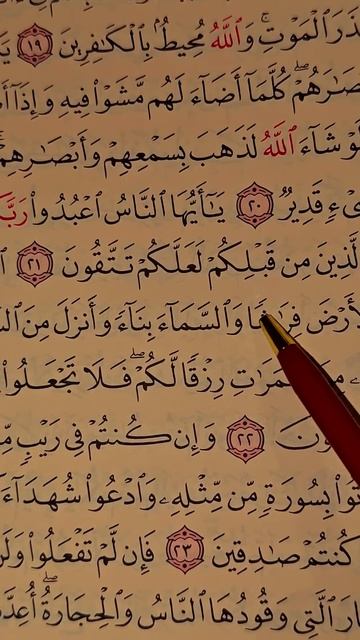 ٱلْمَوْتِ ۚ وَٱللَّهُ مُحِيطٌۢ بِٱلْكَٰفِرِينَ ١٩
كُلَّمَآ أَضَآءَ لَهُم مَّشَوْا۟ فِيهِ وَإِذَآ
شَآءَ ٱللَّهُ لَذَهَبَ بِسَمْعِهِمْ وَأَبْصَٰرِهِمْ
قَدِيرٌ ٢٠ يَٰٓأَيُّهَا ٱلنَّاسُ ٱعْبُدُوا۟
مِن قَبْلِكُمْ لَعَلَّكُمْ تَتَّقُونَ ٢١
وَٱلسَّمَآءَ بِنَآءً وَأَنزَلَ مِنَ
رِزْقًا لَّكُمْ ۖ فَلَا تَجْعَلُوا۟
٢٢ وَإِن كُنتُمْ فِى رَيْبٍ
بِسُورَةٍ مِّن مِّثْلِهِۦ وَٱدْعُوا۟ شُهَدَآءَ
كُنتُمْ صَٰدِقِينَ ٢٣ فَإِن لَّمْ تَفْعَلُوا۟
ٱلَّتِى وَقُودُهَا ٱلنَّاسُ وَٱلْحِجَارَةُ ۖ